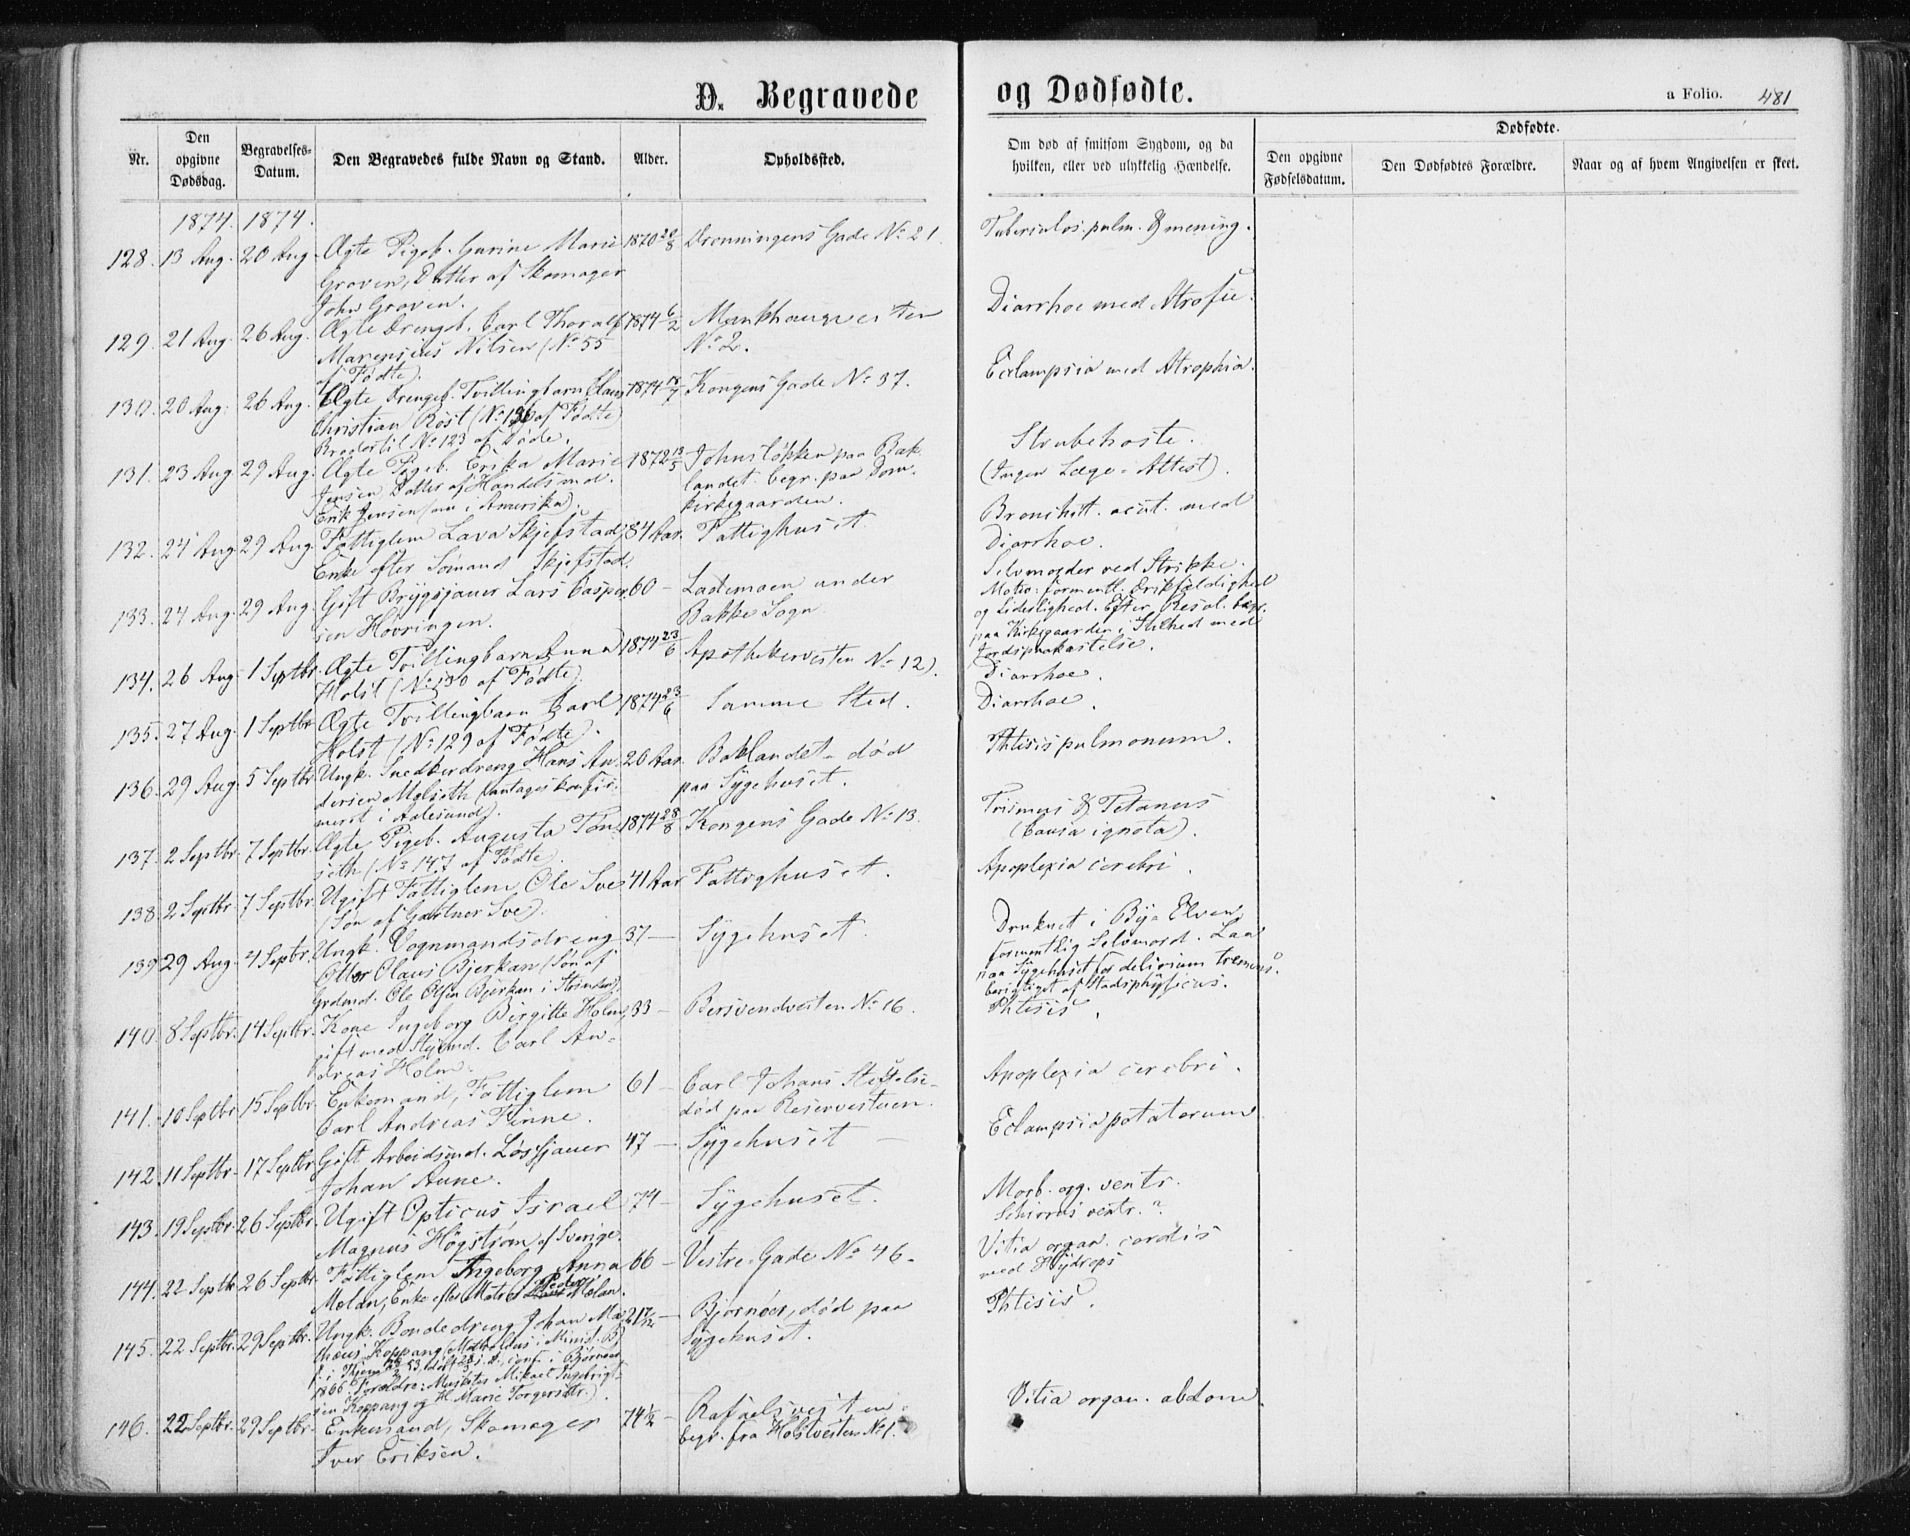 D. Begravede og Dødfødte. a Folio. 481
Nr.
Den opgivne Dødsdag.
Begravelses-Datum.
Den Begravedes fulde Navn og Stand.
Alder.
Opholdssted.
Om død af smitsom Sygdom, og da hvilken, eller ved ulykkelig Hændelse.
Dødfødte.
Den opgivne Fødselsdatum.
Den Dødfødtes Forældre.
Naar og af hvem Angivelsen er skeet.
1874. 1874.
128. 13 Aug. 20 Aug. Ægte Pigeb. Gurine Marie 1870 20/8 Dronningens Gade No 21. Tuberculos. pulm. & mening.
Groven, Datter af Skomager
John Groven.
129. 21 Aug. 26 Aug. Ægte Drengeb. Carl Thoralf 1874 6/2 Munkhaugveiten Diarrhoe med Atrofie.
Marensius Nilsen (No 55 No 2.
af Fødte).
130. 20 Aug. 26 Aug. Ægte Drengeb. Tvillingbarn Claus 1874 18/7 Kongens Gade No 37. Eclampsia med Atrophia.
Christian Røst (No 136 af Fødte)
Broder til No 123 af Døde.
131. 23 Aug. 29 Aug. Ægte Pigeb. Erika Marie 1872 13/5 Johnsløkken paa Bak- Strubehoste.
Jensen Datter af Handelsmd. landet. begr. paa Dom- (Ingen Læge-Attest).
Erik Jensen (nu i Amerika). kirkegaarden.
132. 24 Aug. 29 Aug. Fattiglem Lava Skjefstad, 84 Aar. Fattighuset Bronchit. acut. med
Enke efter Sømand Skjefstad. Diarrhoe.
133. 24 Aug. 29 Aug. Gift Brygsjauer Lars Casper- 60 — Lademoen under Selvmorder ved Strikke.
sen Høvringen. Bakke Sogn Motiv: formentl. Drikfældighed
og Liderlighed. Efter Resol. begr.
paa Kirkegaarden i Stilhed med
Jordspaakastelse.
134. 26 Aug. 1 Septbr. Ægte Tvillingbarn Anna 1874 23/6 Apothekerveiten No 12). Diarrhoe.
Holst (No 130 af Fødte).
135. 27 Aug. 1 Septbr. Ægte Tvillingbarn Carl 1874 23/6 Samme Sted. Diarrhoe.
Holst (No 129 af Fødte).
136. 29 Aug. 5 Septbr. Ungk. Snedkerdreng Hans An- 26 Aar. Baklandet - død Phtisis pulmonum.
dersen Melseth (antages konfir- paa Sygehuset.
meret i Aalesund).
137. 2 Septbr. 7 Septbr. Ægte Pigeb. Augusta Tøn- 1874 28/8 Kongens Gade No 13. Trismus & Tetanus
seth (No 147 af Fødte). (Causa ignota).
138. 2 Septbr. 7 Septbr. Ugift Fattiglem Ole Sve 41 Aar Fattighuset. Apoplexia cerebri.
(Søn af Gartner Sve).
139. 29 Aug. 4 Septbr. Ungk. Vognmandsdreng 37 — Sygehuset. Druknet i By-Elven
Otter Olaus Bjerkan (Søn af formentlig Selvmord. Laa
Grdmd. Ole Olsen Bjerkan i Strinden). paa Sygehuset for delirium tremens.
berigtiget af Stadsphysicus.
140. 8 Septbr. 14 Septbr. Kone Ingeborg Birgitte Holm, 33 — Bersvendveiten No 16. Phtisis.
gift med Styrmd. Carl An-
dreas Holm.
141. 10 Septbr. 15 Septbr. Enkemand, Fattiglem 61 — Carl Johans Stiftelse- Apoplexia cerebri.
Carl Andreas Finne. død paa Reservestuen.
142. 11 Septbr. 17 Septbr. Gift Arbeidsmd. Løssjauer 47 — Sygehuset — Eclampsia potatorum
Johan Aune.
143. 19 Septbr. 26 Septbr. Ugift Opticus Israel 74 — Sygehuset. Morb. org. ventr.
Magnus Høgstrøm af Sverige. Schirrus ventr.?
144. 22 Septbr. 26 Septbr. Fattiglem Ingeborg Anna 66 — Vestre Gade No 46. Vitia organ. cordis
Molan, Enke efter Matros Peder Molan. med Hydrops
145. 22 Septbr. 29 Septbr. Ungk. Bondedreng Johan Ma- 21 7/12 — Bjørnøer, død paa Phtisis.
thæus Koppang Sygehuset.
1866. Forældre: Musketer Mikael Ingebrigt-
sen Koppang og H. Marie Torgersdtr.).
146. 22 Septbr. 29 Septbr. Enkemand, Skomager 74 1/2 — Rafaelsveiten - Vitia organ. abdom.
Iver Eriksen. begr. fra Holstveiten No 1.